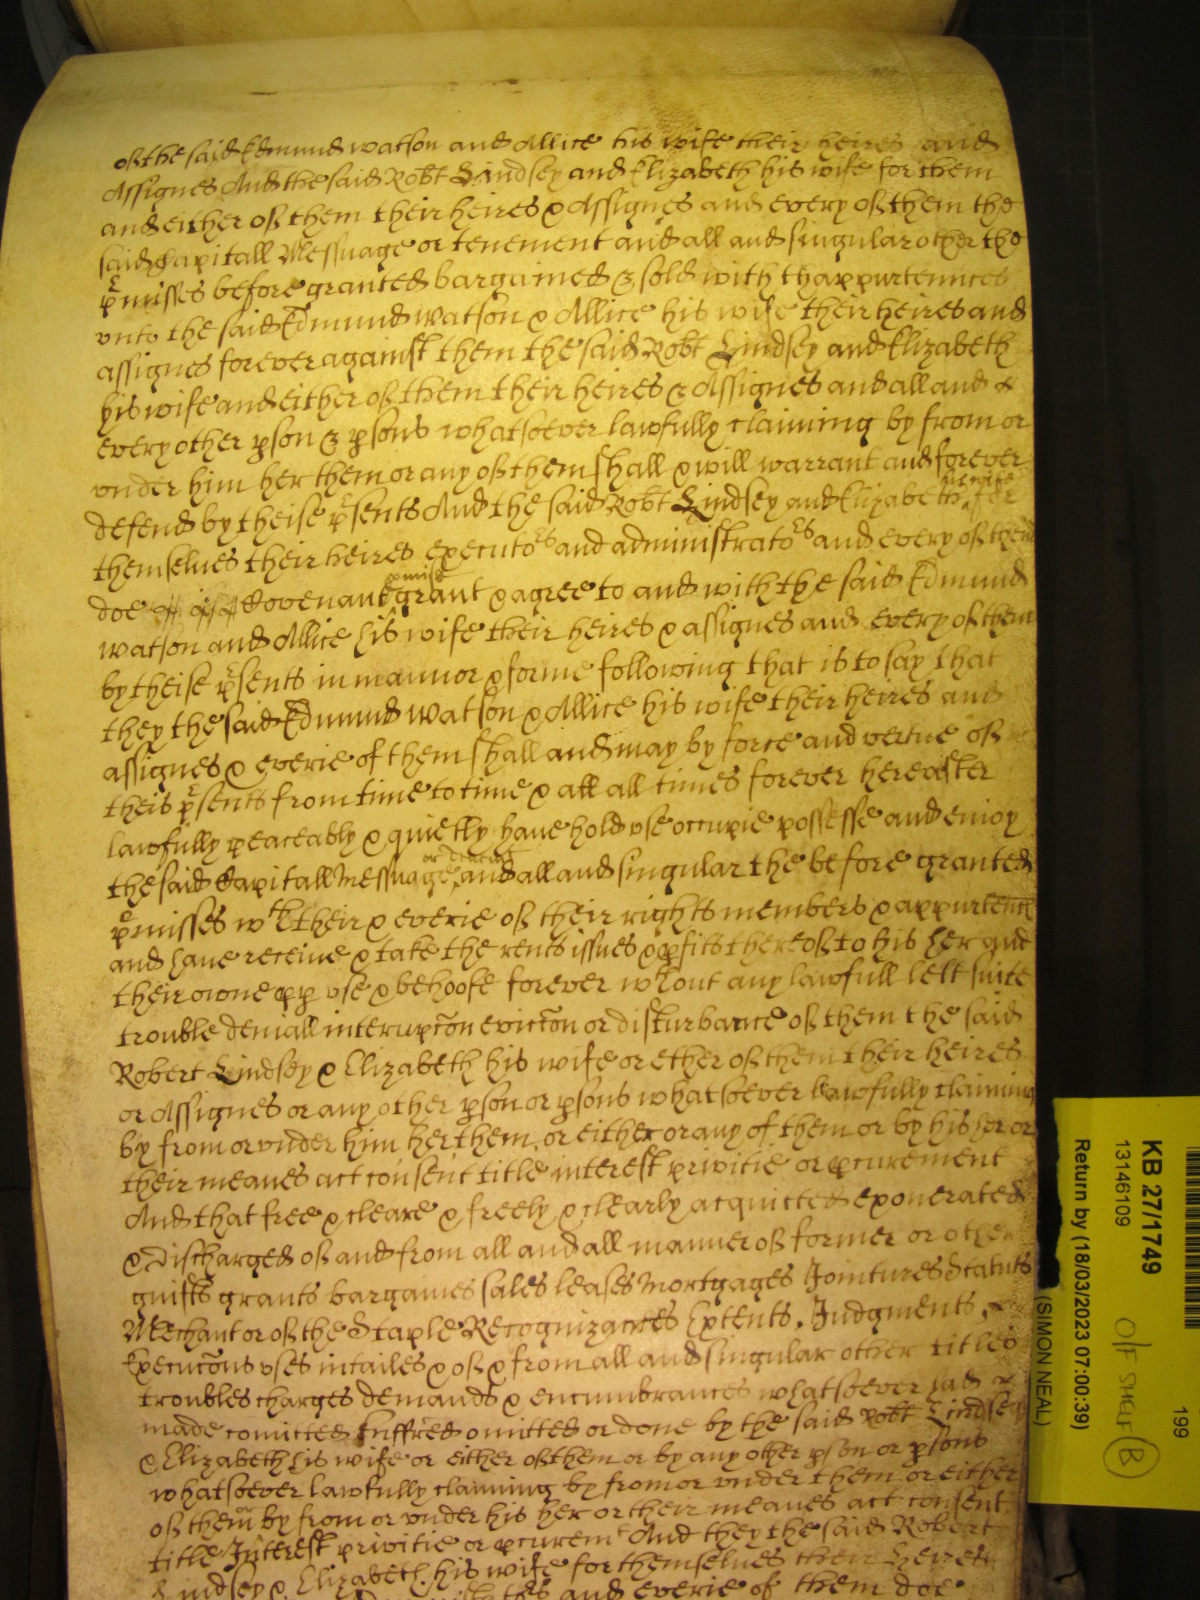 of the said Edmund Watson and Allice his wife their heires and
Assignes And the said Robt Lindsey and Elizabeth his wife for them
and either of them their heires & Assignes and every of them the
said Capitall Messuage or tenement and all and singular other the
pmisses before granted bargained & sold with thappurtennces
vnto the said Edmund Watson & Allice his wife their heires and
assignes forever against them the said Robt Lindsey and Elizabeth
his wife and either of them their heires & Assignes and all and &
every other pson & psons whatsoever lawfully claiming by from or
vnder him her them or any of them shall & will warrant and forever
defend by theise psents And the said Robt Lindsey and Elizabeth his wife for
themselues their heires executors and administrators and every of them
doe Covenant pmise grant & agree to and with the said Edmund
Watson and Allice his wife their heires & assignes and every of them
by theise psents in mannor & forme following that is to say that
they the said Edmund Watson & Allice his wife their heires and
assignes & everie of them shall and may by force and vertue of
theis psents from time to time & att all times forever hereafter
lawfully peaceably & quietly haue hold vse occupie possesse and enioy
the said Capitall Messuage or tenemt and all and singular the before granted
pmisses wth their & everie of their rights members & appurtennc
and haue receiue & take the rents issues & pfitts thereof to his her and
their owne pp vse & behoofe forever wthout any lawfull lett suite
trouble deniall interupcon eviccon or disturbance of them the said
Robert Lindsey & Elizabeth his wife or ether of them their heires
or Assignes or any other pson or psons whatsoever lawfully claiming
by from or vnder him her them or either or any of them or by his her or
their meanes act consent title interest privitie or pcurement
And that free & cleare & freely & clearly acquicted exonerated
& Discharged of and from all and all manner of former or other
guifts grants bargaines sales leases Mortgages Jointures Statuts
Mechant or of the Staple Recognizances Extents, Judgments, &
Execucons vses intailes & of & from all and singular other titles
troubles charges demands & encumbrances whatsoever had &
made comitted suffred omitted or done by the said Robt Lindsey
& Elizabeth his wife or either of them or by any other pson or psons
whatsoever lawfully claiming by from or vnder them or either
of them or by from or vnder his her or their meanes act consent
title Interest privitie or pcuremt And they the said Robert
Lindsey & Elizabeth his wife for themselues their heires
and everie of them doe
KB 27/1749
13146109
Return by (18/03/2023 07:00:39)
(SIMON NEAL)
199
O/F SHELF
B